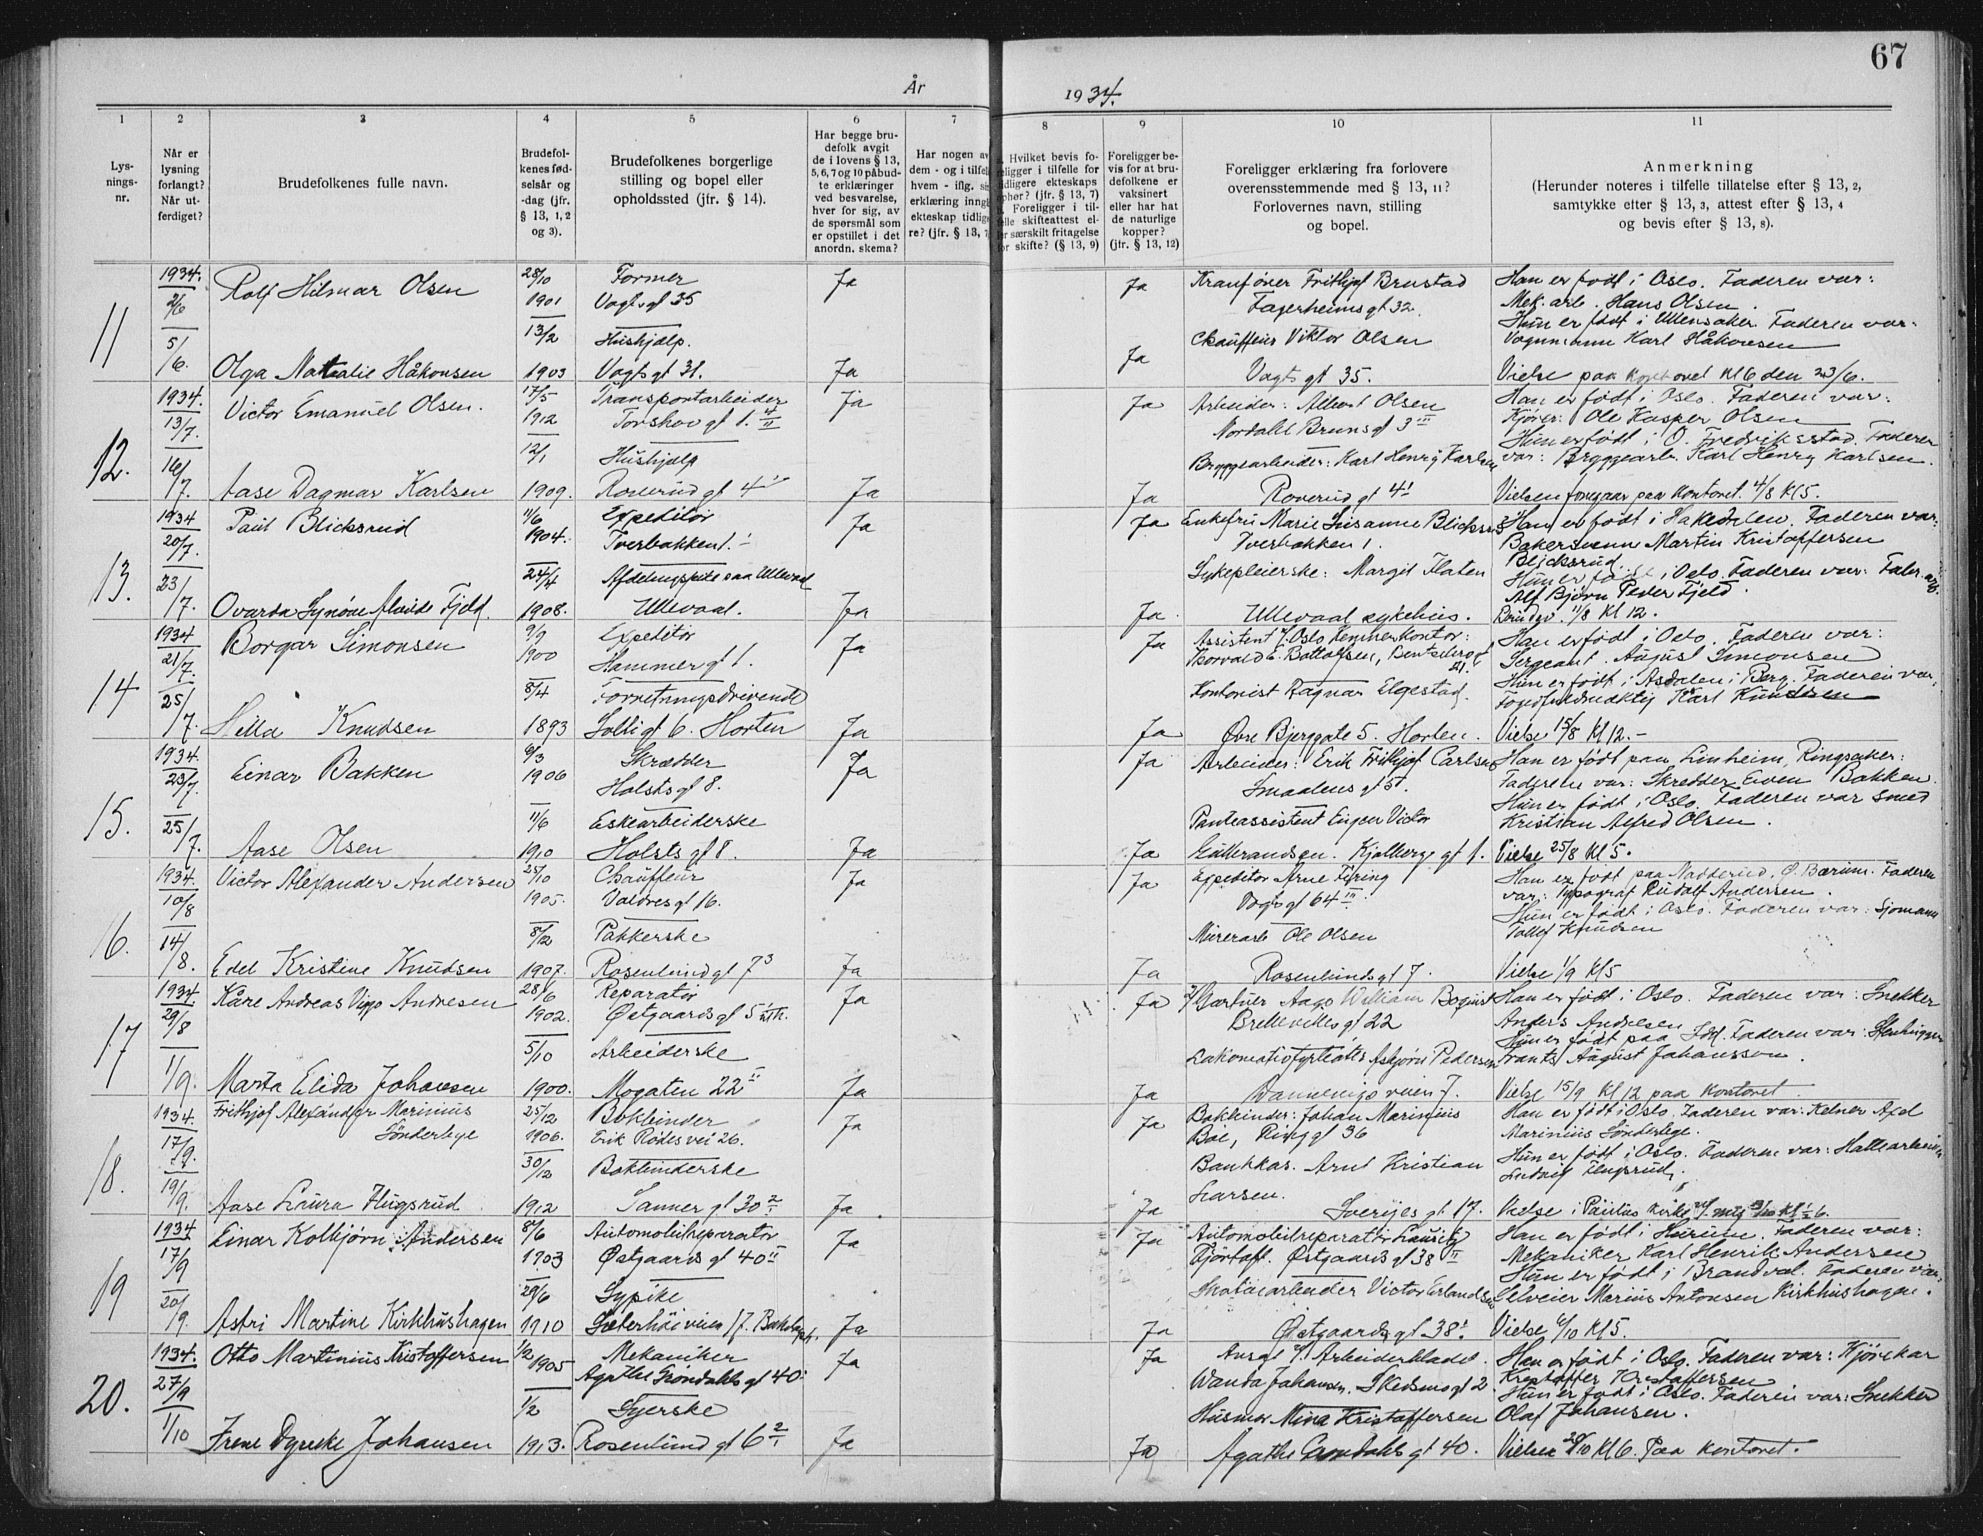 67
År 1934.
1 2 3 4 5 6 7 8 9 10 11
Lys-
nings-
nr.
Når er
lysning
forlangt?
Når ut-
ferdiget?
Brudefolkenes fulle navn.
Brudefol-
kenes fød-
selsår og
-dag (jfr.
§ 13, 1, 2
og 3).
Brudefolkenes borgerlige
stilling og bopel eller
opholdssted (jfr. § 14).
Har begge bru-
defolk avgit
de i lovens § 13,
5, 6, 7 og 10 påbud-
te erklæringer
ved besvarelse,
hver for sig, av
de spørsmål som
er opstillet i det
anordn. skema?
Har nogen av
dem - og i tilfelle
hvem - iflg.
erklæring inngått
ekteskap tidlige-
re? (jfr. § 13,
Hvilket bevis fo-
religger i tilfelle for
tidligere ekteskaps
ophør? (jfr. § 13, 7)
Foreligger i til-
felle skifteattest el-
ler særskilt fritagelse
for skifte? (§ 13, 9)
Foreligger be-
vis for at brud-
efolkene er
vaksinert
eller har hat
de naturlige
kopper?
(jfr. § 13, 12)
Foreligger erklæring fra forlovere
overensstemmende med § 13, 11?
Forlovernes navn, stilling
og bopel.
Anmerkning
(Herunder noteres i tilfelle tillatelse efter § 13, 2,
samtykke efter § 13, 3, attest efter § 13, 4
og bevis efter § 13, 8).
11
1934. 2/6
5/6.
Rolf Hilmar Olsen
28/10 1901
Former
Vogts gt 35
Ja
Ja
Kranfører Frithjof Brustad
Fagerheims gt 32.
Han er født i Oslo. Faderen var:
Mek. arb. Hans Olsen.
Olga Natalie Håkonsen
13/2 1903
Hushjælp.
Vogts gt 31.
Ja
Ja
Chauffeur Viktor Olsen
Vogts gt 35.
Hun er født i Ullensaker. Faderen var:
Vognmann Karl Håkonsen
Vielse paa kontoret kl 6 den 23/6.
12.
1934. 13/7.
16/7.
Victor Emanuel Olsen.
17/5 1912
Transportarbeider
Torshov gt 1. 4/II
Ja
Ja
Arbeider: Albert Olsen
Nordahl Bruns gt 3 II
Han er født i Oslo. Faderen var:
Kjører: Ole Kasper Olsen
Aase Dagmar Karlsen
12/1 1909.
Hushjælp
Roverud gt 4 I
Ja
Ja
Bryggearbeider: Karl Henry Karlsen
Roverud gt 4 I
Hun er født i Ø. Fredriksstad. Faderen
var: Bryggearb. Karl Henry Karlsen.
Vielsen foregaar paa kontoret. 4/8 kl 5.
13.
1934 20/7.
23/7.
Paul Blicksrud
11/6 1904.
Expeditør
Tverbakken 1.
Ja
Ja
Enkefru Marie Susanne Blicksrud
Tverbakken 1.
Han er født i Hakedalen. Faderen var:
Bakersvenn Martin Kristoffersen
Blicksrud.
Ovarda Synøve Fjeld.
24/4 1908.
Ullevaal.
Ja
Ja
Sykepleierske: Margit Flaten
Ullevaal sykehus.
Hun er født i Oslo. Faderen var:
Alf Bjørn Peter Fjeld.
11/8 Kl 12.
14
1934 21/7.
25/7.
Borgar Simonsen
9/9 1900
Expeditør
Hammer gt 1.
Ja
Ja
Assistent v/ Oslo Kemnerkontor:
Thorvald E. Bottolfsen, Bentsebro gt
21.
Han er født i Oslo. Faderen var:
Sergeant. August Simonsen
Hilla Knudsen
8/4 1893
Forretningsdrivende
Solli gt 6. Horten
Ja
Ja
Kontorist Ragnar Elgestad.
Øvre Bjerggate 5. Horten.
Hun er født i Asdalen i Berg. Faderen var,
Fogedfuldmæktig Karl Knudsen
Vielse 15/8 kl 12.-
15.
1934. 23/7.
25/7.
Einar Bakken
6/3 1906
Skrædder
Holsts gt 8.
Ja
Ja
Arbeider: Erik Frithjof Carlsen
Smaalens gt 5.
Han er født paa Linheim, Ringsaker:
Faderen var: Skredder Even Bakken.
Aase Olsen
11/6 1910
Eskearbeiderske
Holsts gt 8.
Ja
Ja
Panteassistent Victor
Gulbrandsen. Kjølberg gt 1.
Hun er født i Oslo. Faderen var Smed
Kristian Alfred Olsen.
Vielse 25/8 kl 5.
16.
1934. 10/8
14/8.
Victor Alexander Andersen
25/10 1905.
Chauffeur
Valdres gt 16.
Ja
Ja
Expeditør Arne Fjring
Vogts gt 64 III
Han er født paa Nadderud. Ø. Bærum. Faderen
var: Typograf Rudolf Andersen.
Edel Kristine Knudsen
8/12 1907.
Pakkerske
Rosenlund gt 7 3
Ja
Ja
Murerarb Ole Olsen
Rosenlunds gt 7.
Hun er født i Oslo. Faderen var: Sjømann
Tollef Knudsen
Vielse 1/9 kl 5
17
1934. 29/8
1/9.
Kåre Andreas Viggo Andresen
28/6 1902.
Reparatør
Østgaards gt 5
Ja
Ja
Gartner Aage William
Brettevilles gt 22
Han er født i Oslo. Faderen var: Snekker
Anders Andresen
Marta Elida Johansen
5/10 1900.
Arbeiderske
Mogaten 22 II
Ja
Ja
Lokomotivfyrbøter Asbjørn Pedersen
veien 7.
Hun er født paa Idd. Faderen var: Stenhugger
Frants August Johansson.
Vielse 15/9 kl 12 paa kontoret.
18.
1934. 17/9.
19/9.
Frithjof Alexander Marinius
Sønderbye
25/12 1906.
Bokbinder
Erik Rødes vei 26.
Ja
Ja
Bokbinder: Johan Marinius
Boe, Ring gt 36
Han er født i Oslo. Faderen var: Kelner Axel
Marinius Sønderbye.
Aase Laura Flugsrud
30/12 1912
Bokbinderske
Sanner gt 30
Ja
Ja
Bankkas. Arnt Kristian
Larsen.
Sveriges gt 17.
Hun er født i Oslo. Faderen var:
Ludvig Flugsrud,
Vielse i Paulus kirke
19
1934 17/9
20/9.
Einar Kolbjørn Andersen
8/6 1903
Automobilreparatør
Østgaards gt 40 II
Ja
Ja
Automobilreparatør
Østgaards gt 38 II
Han er født i Hurum. Faderen var:
Mekaniker Karl Henrik Andersen
Astri Martine Kirkhushagen
29/6 1910
Sypike
Sæterhøiveien 17.
Ja
Ja
Skotøiarbeider Victor Erlandsen
Østgaards gt 38 I
Hun er født i Brandval. Faderen var:
Selveier Marius Antonsen Kirkhushagen.
Vielse 6/10 kl 5.
20.
1934. 27/9
1/10
Otto Martinius Kristoffersen
1/2 1905
Mekaniker
Agathe Grøndahls gt 40.
Ja
Ja
Ansat v/ Arbeiderbladet.
Wanda Johansen. Skedsmo gt 2
Han er født i Oslo. Faderen var: Kjørekar
Kristoffer Kristoffersen
Irene Dyveke Johansen
1/2 1913.
Syerske
Rosenlund gt 6
Ja
Ja
Husmor Mina Kristoffersen
Agathe Grøndahls gt 40.
Hun er født i Oslo. Faderen var: Snekker
Olaf Johansen.
Vielse 20/10 kl 6. Paa kontoret.